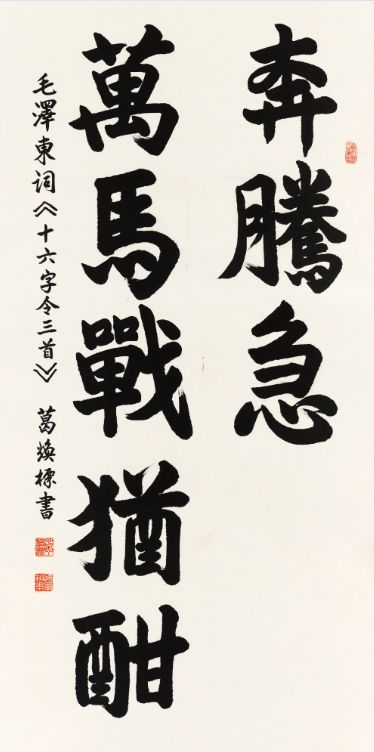 奔騰急
萬馬戰猶酣
毛澤東词《十六字令三首》 葛焕標書